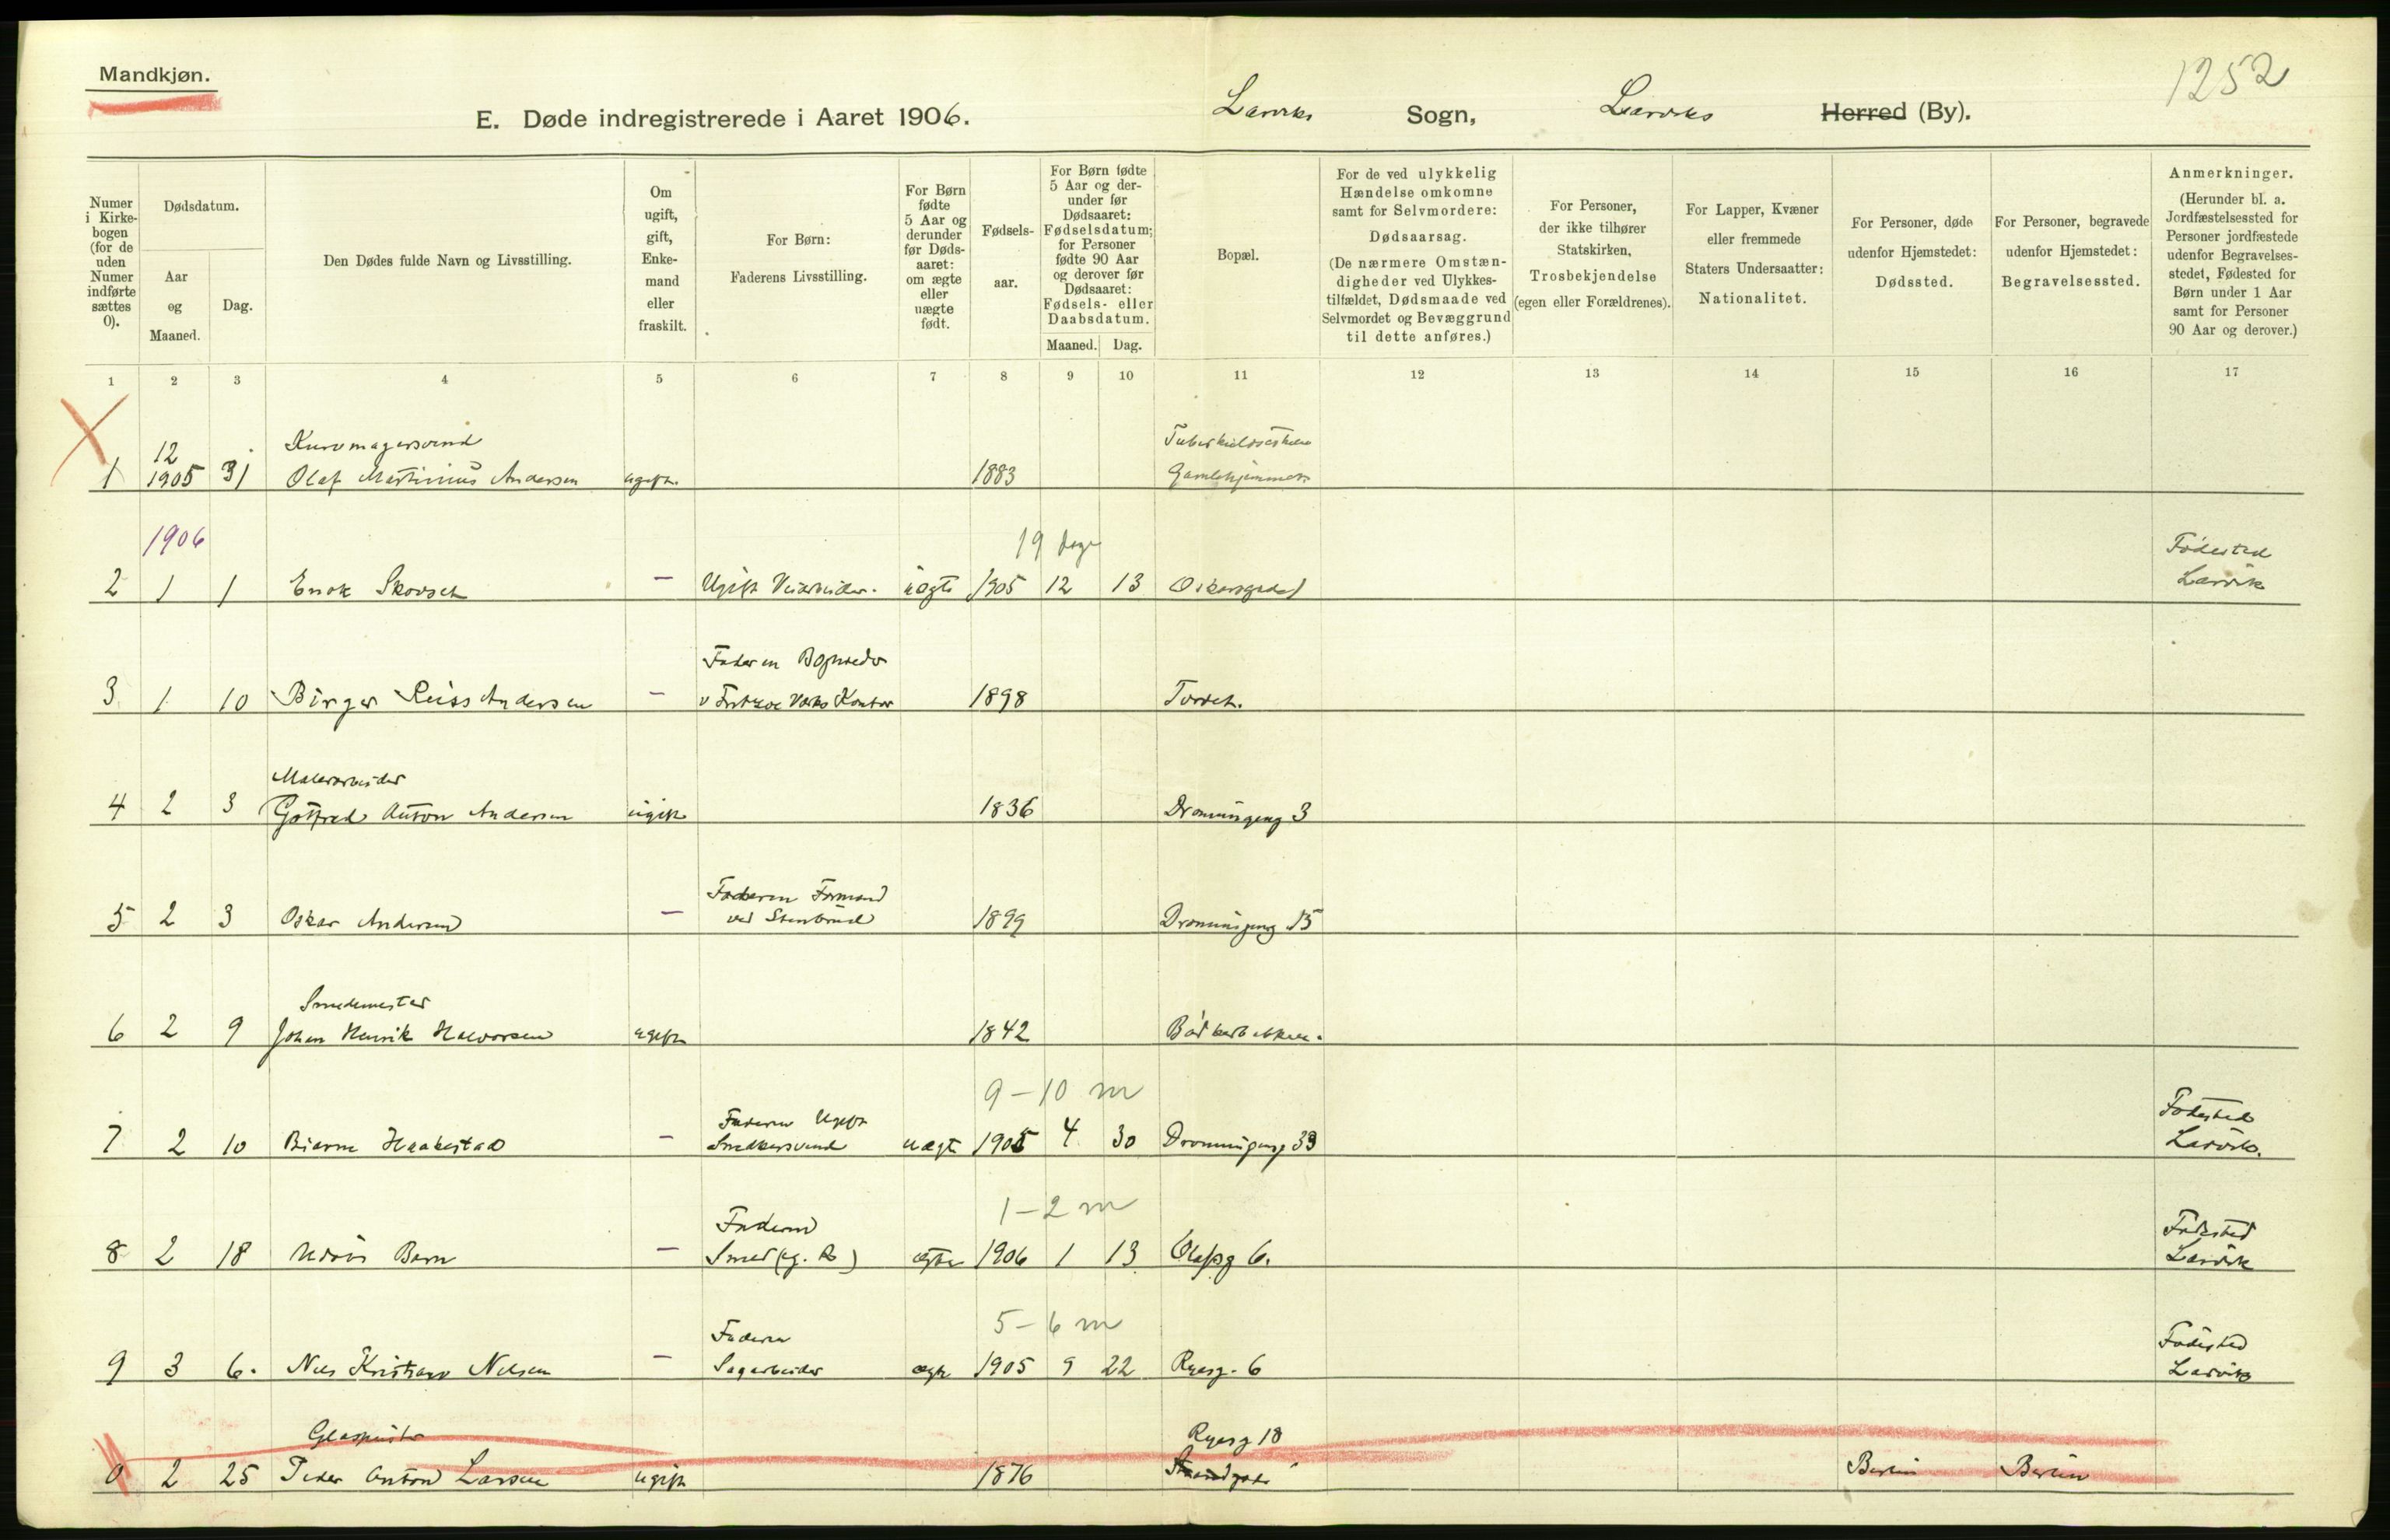 Mandkjøn.
1252
E. Døde indregistrerede i Aaret 1906.
Larviks Sogn, Larviks Herred (By).
Numer i Kirkebogen (for de uden Numer indførte sættes 0).
Dødsdatum.
Aar og Maaned.
Dag.
Den Dødes fulde Navn og Livsstilling.
Om ugift, gift, Enkemand eller fraskilt.
For Børn:
Faderens Livsstilling.
For Børn fødte 5 Aar og derunder før Dødsaaret: om ægte eller uægte født.
Fødselsaar.
For Børn fødte 5 Aar og derunder før Dødsaaret: Fødselsdatum; for Personer fødte 90 Aar og derover før Dødsaaret: Fødsels- eller Daabsdatum.
Maaned.
Dag.
Bopæl.
For de ved ulykkelig Hændelse omkomne samt for Selvmordere: Dødsaarsag.
(De nærmere Omstændigheder ved Ulykkestilfældet, Dødsmaade ved Selvmordet og Bevæggrund til dette anføres.)
For Personer, der ikke tilhører Statskirken, Trosbekjendelse (egen eller Forældrenes).
For Lapper, Kvæner eller fremmede Staters Undersaatter: Nationalitet.
For Personer, døde udenfor Hjemstedet: Dødssted.
For Personer, begravede udenfor Hjemstedet: Begravelsessted.
Anmerkninger.
(Herunder bl. a. Jordfæstelsessted for Personer jordfæstede udenfor Begravelsesstedet, Fødested for Børn under 1 Aar samt for Personer 90 Aar og derover.)
1 2 3 4 5 6 7 8 9 10 11 12 13 14 15 16 17
12 Kurvmagersvend
1 1905 31 Olaf Martinius Andersen ugift. 1883 Gamlehjemmet
1906 19 dage Fødested
2 1 1 Enok Skovset — Ugift Veiarbeider. uægte 1905 12 13 Oskarsgade Larvik
Faderen Bogholder
3 1 10 Birger Reiss Andersen — v Fritzøe Værks Kontor 1898 Torvet.
Malerarbeider
4 2 3 Gotfred Anton Andersen ugift 1836 Dronningeng 3
Faderen Formand
5 2 3 Oskar Andersen — ved Stenbrud 1899 Dronningeng 15
Smedemester
6 2 9 Johan Henrik Halvorsen ugift 1842 Bøkkerbakken.
9–10 m
Faderen Ugift Fødested
7 2 10 Bjarne Haakestad — Snedkersvend uægte 1905 4 30 Dronningeng 33 Larvik.
1–2 m
Faderen Fødested
8 2 18 Udøbt Barn — Smed ægte 1906 1 13 Olafsg 6. Larvik
5–6 m
Faderen Fødested
9 3 6. Nils Kristian Nilsen — Sagarbeider ægte 1905 9 22 Ryesg. 6 Larvik
Glaspuster Ryesg 18
0 2 25 Peder Anton Larsen ugift 1876 Strandgade Berlin Berlin